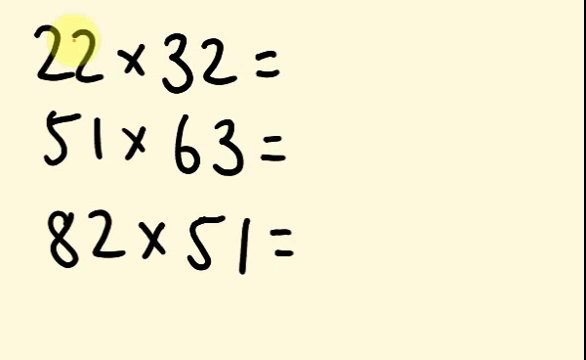 22 × 32 =
51 × 63 =
82 × 51 =